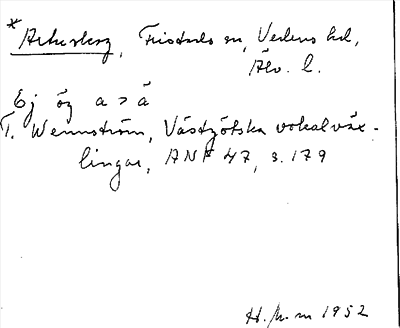 * Askesberg, Fristads sn, Vedens hd,
Älv. l.
Ej ög a > å
T. Wennström, Västgötska vokalväx-
lingar, ANF 47, s. 179
H. 1952